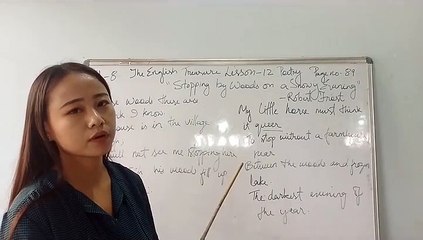 -8 The English Treasure Lesson-12 Poetry Page no. 89
"Stopping by Woods on a Snowy Evening"
- Robert Frost
woods these are
I know
house is in the village
not see me stopping here
his woods fill up
My little horse must think
it queer
To stop without a farmhouse
near
Between the woods and frozen
lake
The darkest evening of
the year.